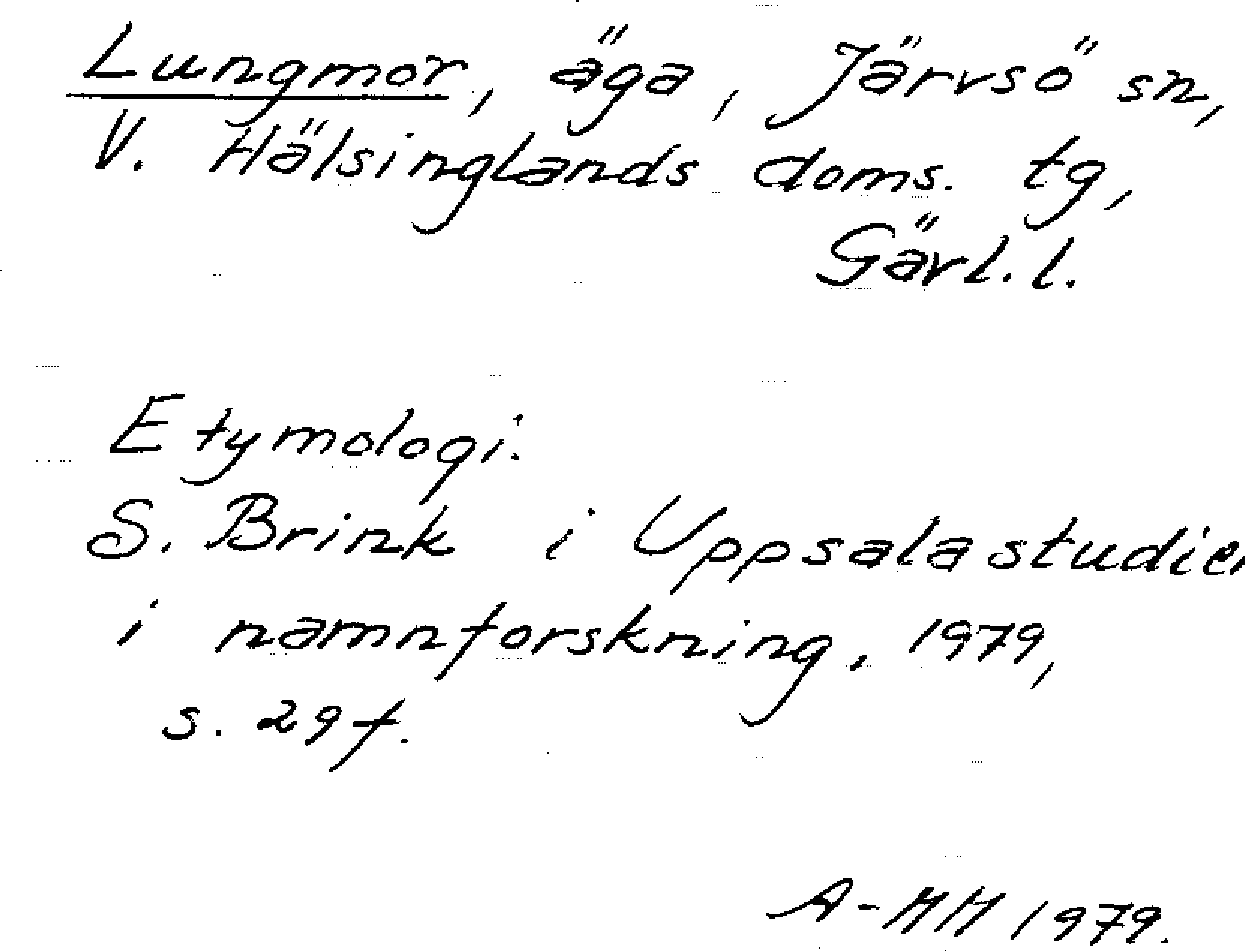 Lungmor, äga, Järvsö sn,
V. Hälsinglands doms. tg,
Gävl. l.
Etymologi.
S. Brink i Uppsalastudier
i namnforskning, 1979,
s. 29 f.
A-MH 1979.